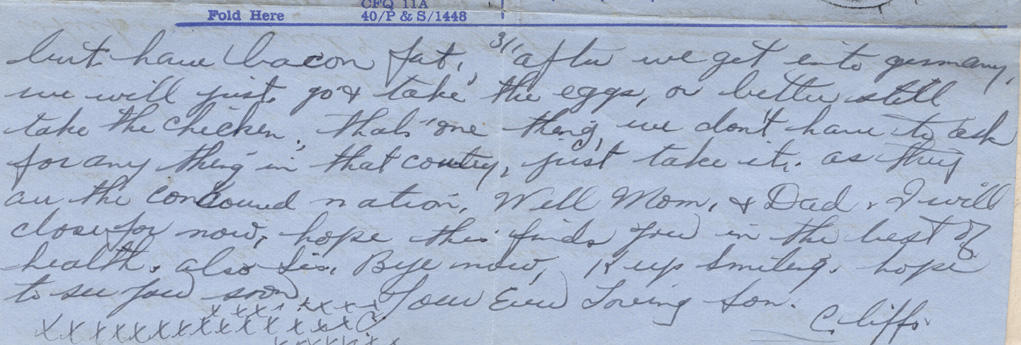 CFQ 11A
Fold Here 40/P & S/1448
but have bacon fat, 3/ after we get into germany,
we will just. go & take the eggs, or better still
take the chicken. thats one thing, we don't have to ask
for any thing in that contry, just take it. as they
are the concound nation, Well Mom, & Dad. I will
close for now, hope this finds you in the best of
health. also Sis. Bye now, K up smiling. hope
to see you soon Your Ever Loving Son.
xxxxxxxx Cliff.
xxxxxxxxxxxxxxxx
xxxxxxx